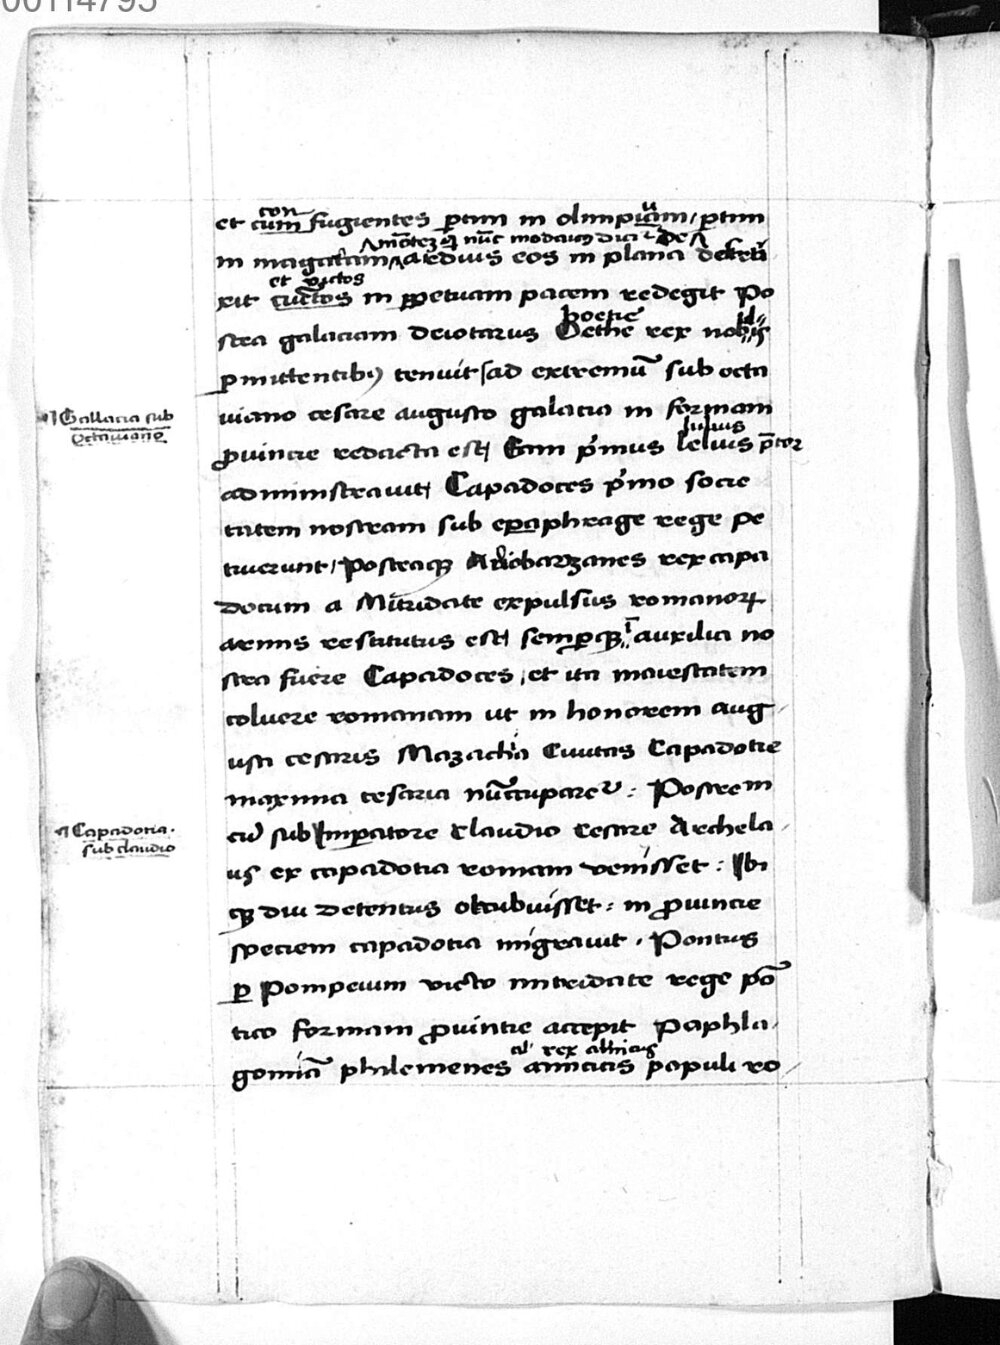 00114795
con
et cum fugientes ꝑtim in olimpium / ptim
montez q̄ nūc modaus dicit̄ De
in magatam arduis eos in plana detru
et victos
xit cunctos in ꝑpetuam pacem redegit Po
boetie
stea galaciam deiotarus Oethe rex nobis
ꝑmittentibꝰ tenuit sad extremū sub octa
¶ Gallacia sub
Octauiano
uiano cesare augusto galatia in formam
lunus
ꝓuincie redacta est / Eam pͥmus leluis p̄tor
administrauit / Capadoces pͥmo socie
tatem nostram sub eparaphrage rege pe
tiuerunt / Posteaqꝫ Ariobarzanes rex capa
docum a Mitridate expulsus romanoꝝ
armis restitutus est / semꝑqꝫ ī auxilia no
stra fuere Capadoces / et ita maiestatem
coluere romanam ut in honorem aug
usti cesaris Mazacha Ciuitas Capadotie
maxima cesaria nūccuparet᷑ : Postrem
¶ Capadotia .
sub claudio
cū sub Imꝑatore Claudio Cesare Archela
us ex capadotia romam venisset : Ibi
qꝫ diu detentus occubuisset : in ꝓuincie
speciem capadotia migrauit . Pontus
ꝑ Pompeium victo mitridate rege pō
tico formam ꝓuintie accepit Paphla
al' rex amicus
gomiā philemenes amicicis papuli ro